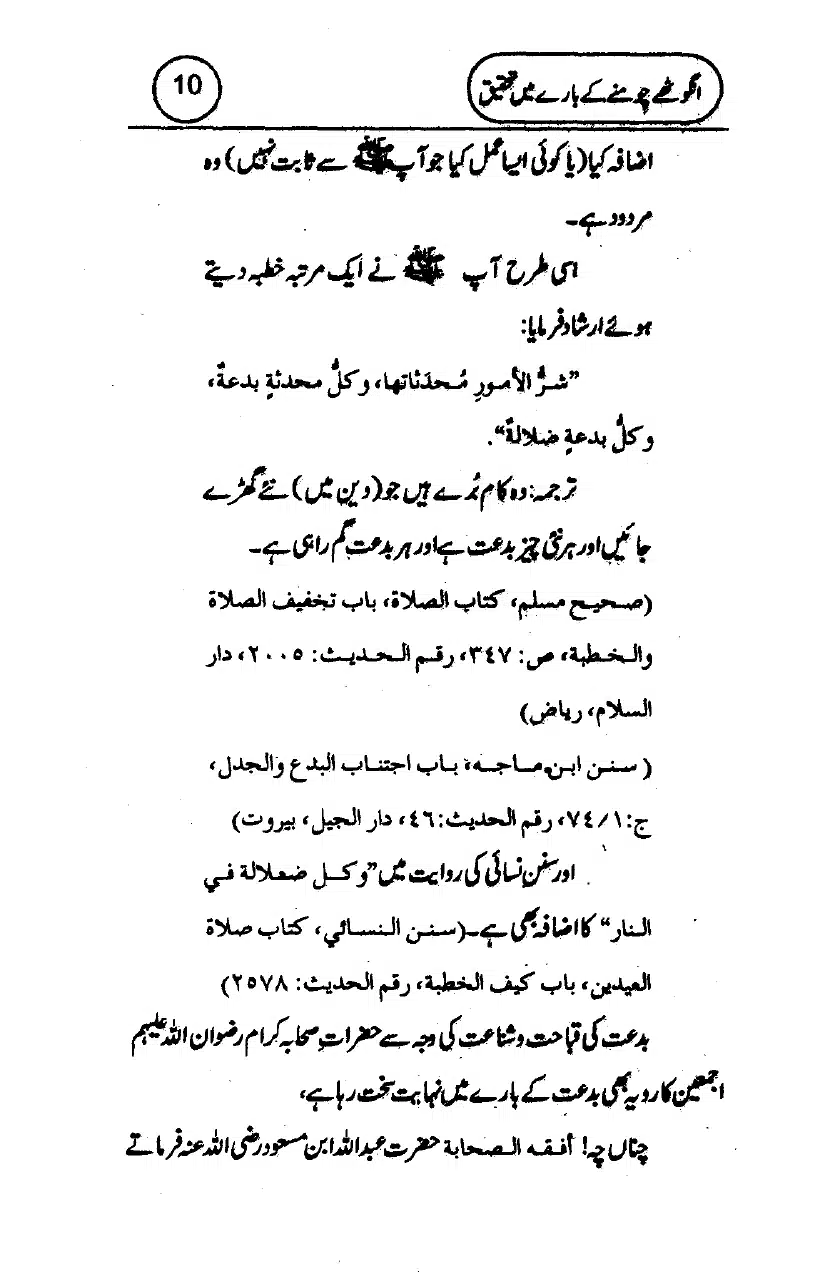 انگوٹھے چومنے کے بارے میں تحقیق
10
اضافہ کیا (یا کوئی ایسا عمل کیا جو آپ ﷺ سے ثابت نہیں) وہ
مردود ہے۔
اسی طرح آپ ﷺ نے ایک مرتبہ خطبہ دیتے
ہوئے ارشاد فرمایا:
”شرُّ الأمورِ مُحدَثاتها، وكلُّ محدثةٍ بدعةٌ،
وكلُّ بدعةٍ ضلالةٌ“.
ترجمہ: وہ کام بُرے ہیں جو (دین میں) نئے گھڑے
جائیں اور ہر نئی چیز بدعت ہے اور ہر بدعت گم راہی ہے۔
(صحيح مسلم، كتاب الصلاة، باب تخفيف الصلاة
والخطبة، ص: ٣٤٧، رقم الحديث: ٢٠٠٥، دار
السلام، رياض)
(سنن ابن ماجه، باب اجتناب البدع والجدل،
ج: ٧٤/١، رقم الحديث: ٤٦، دار الجيل، بيروت)
اور سنن نسائی کی روایت میں ”وكل ضلالة في
النار“ کا اضافہ بھی ہے۔ (سنن النسائي، كتاب صلاة
العيدين، باب كيف الخطبة، رقم الحديث: ٢٥٧٨)
بدعت کی قباحت وشناعت کی وجہ سے حضراتِ صحابہ کرام رضوان اللہ علیہم
اجمعین کا رویہ بھی بدعت کے بارے میں نہایت سخت رہا ہے،
چناں چہ! أفقه الصحابة حضرت عبداللہ ابن مسعود رضی اللہ عنہ فرماتے